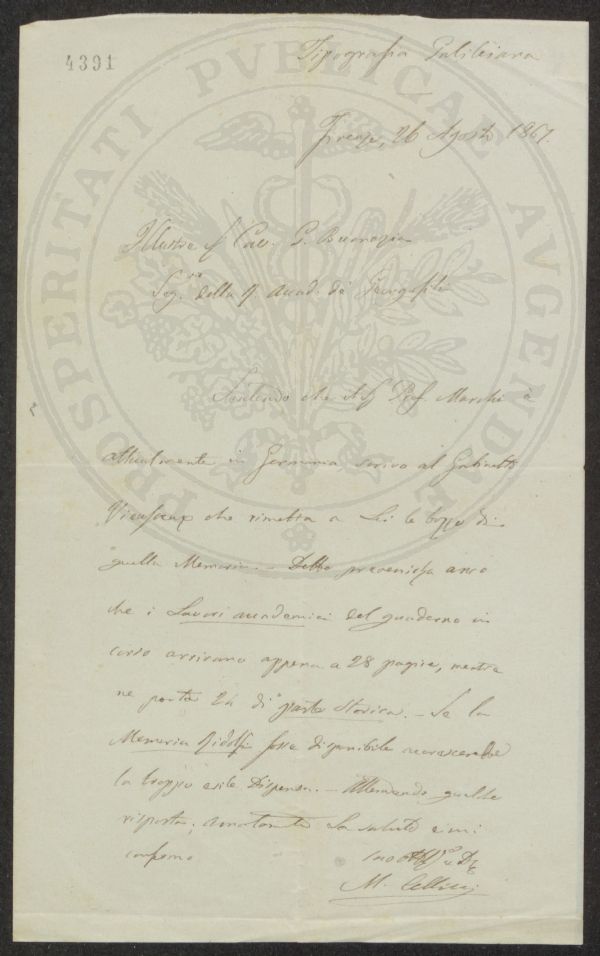 4391
PROSPERITATI PVBLICAE AVGENDAE
Tipografia Galileiana
Firenze, 26 Agosto 1867.
Illustre S. Cav.
Seg.rio della R. Accad. de' Georgofili
Sentendo che il Sig. Prof. Marchi è
attualmente in Germania, scrivo al Gabinetto
Vieusseux che rimetta a Lei le bozze di
quella Memoria. — Debbo prevenirla anco
che i Lavori accademici del quaderno in
corso arrivano appena a 28 pagine, mentre
ne porta 24 di parte storica. — Se la
Memoria Ridolfi fosse disponibile accrescerebbe
la troppo esile Dispensa. — Attendendo qualche
risposta, la saluto e mi
confermo
M. Cellini